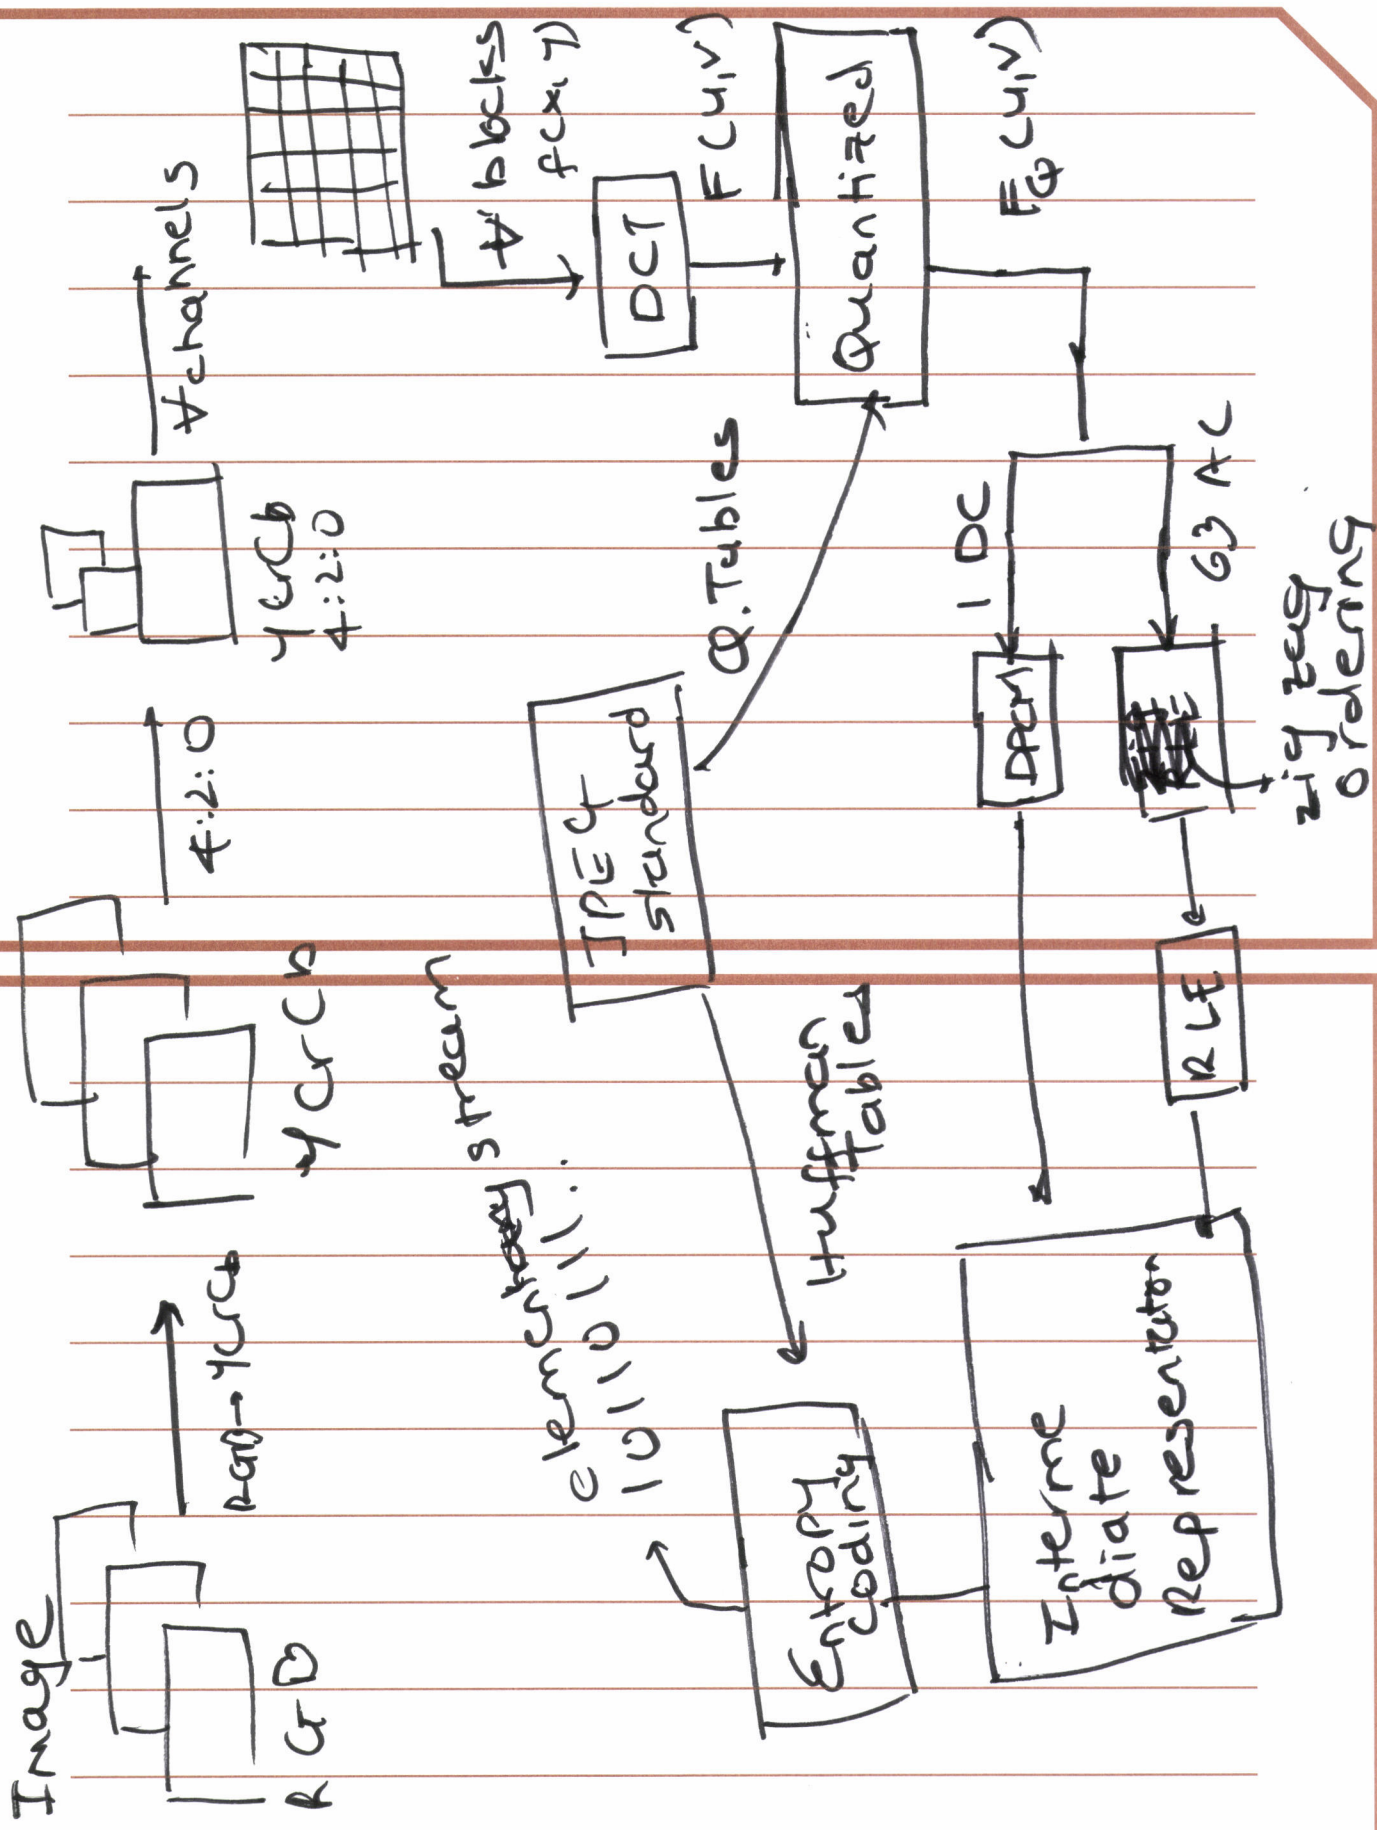 Image
R G B
RGB→YCrCb
Y Cr Cb
4:2:0
YCrCb
4:2:0
∀ channels
∀ blocks
f(x,y)
DCT
F(u,v)
Quantized
FQ(u,v)
JPEG
standard
Q.Tables
Huffman
Tables
1 DC
63 AC
DPCM
zig zag
ordering
RLE
Interme
diate
Representation
Entropy
coding
elementary stream
10110111..